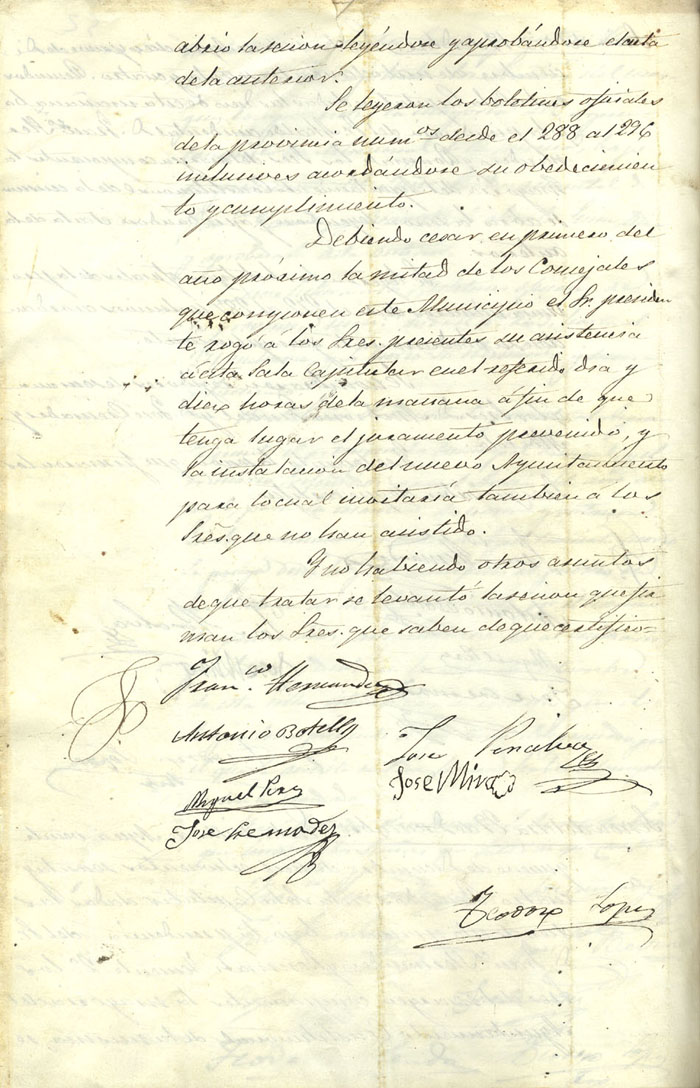 abrio la sesion leyéndose y aprobándose el acta
de la anterior.
Se leyeron los boletines oficiales
de la provincia num.os desde el 288 al 296
inclusives acordándose su obedecimien
to y cumplimiento.
Debiendo cesar en primero del
año próximo la mitad de los Concejales
que componen este Municipio el Sr. presiden
te rogó á los Sres. presentes su asistencia
á esta Sala Capitular en el referido dia y
diez horas de la mañana á fin de que
tenga lugar el juramento prevenido, y
la instalacion del nuevo Ayuntamiento
para lo cual invitaría tambien á los
Sres. que no han asistido.
Y no habiendo otros asuntos
de que tratar se levantó la sesion que fir
man los Sres. que saben de que certifico
Fran.co Hernandez
Antonio Botella
Jose Penalva
Jose Mira
Miguel Perez
Jose Hernandez
Teodoro Lopez